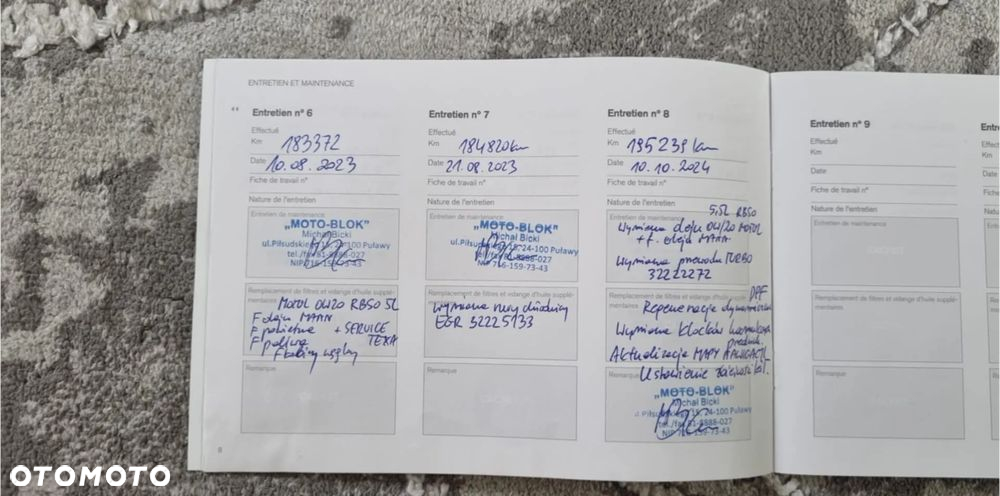 ENTRETIEN ET MAINTENANCE
Entretien n° 6
Effectué
Km 183372
Date 10.08.2023
Fiche de travail n°
Nature de l'entretien
Entretien de maintenance
„MOTO-BLOK"
Michał Bicki
ul.Piłsudskiego 15, 24-100 Puławy
tel./fax 81-8888-027
NIP 716-159-73-43
Remplacement de filtres et vidange d'huile supplé-
mentaires
MOTUL 0W20 RBS0 5L
F oleju MANN
F powietrza + SERVICE
F paliwa TEXA
F kabiny węglowy
Remarque
8
Entretien n° 7
Effectué
Km 184820 km
Date 21.08.2023
Fiche de travail n°
Nature de l'entretien
Entretien de maintenance
„MOTO-BLOK"
Michał Bicki
ul.Piłsudskiego 15, 24-100 Puławy
tel./fax 81-8888-027
NIP 716-159-73-43
Remplacement de filtres et vidange d'huile supplé-
mentaires
Wymiana rury chłodnicy
EGR 32225133
Remarque
Entretien n° 8
Effectué
Km 195239 km
Date 10.10.2024
Fiche de travail n°
Nature de l'entretien
5,5L RBS0
Entretien de maintenance
Wymiana oleju 0W20 MOTUL
+ f. oleju MANN
Wymiana przewodu TURBO
32222272
Remplacement de filtres et vidange d'huile supplé-
mentaires
DPF
Regeneracja dynamiczna
Wymiana klocków
Aktualizacja MAPY NAWIGACJI
Ustawienie zbieżności kół.
Remarque
„MOTO-BLOK"
Michał Bicki
ul.Piłsudskiego 15, 24-100 Puławy
tel./fax 81-8888-027
NIP 716-159-73-43
Entretien n° 9
Effectué
Km
Date
Fiche de travail n°
Nature de l'entretien
Entretien de maintenance
CACHET
Remplacement de filtres et vidange d'huile supplé-
mentaires
Remarque
CACHET
OTOMOTO